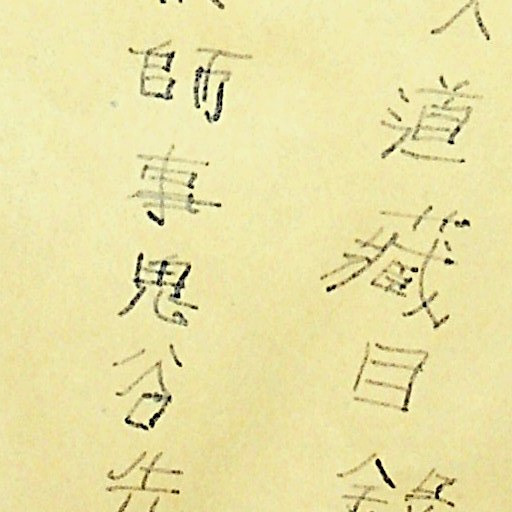 道藏目錄
師事鬼谷先